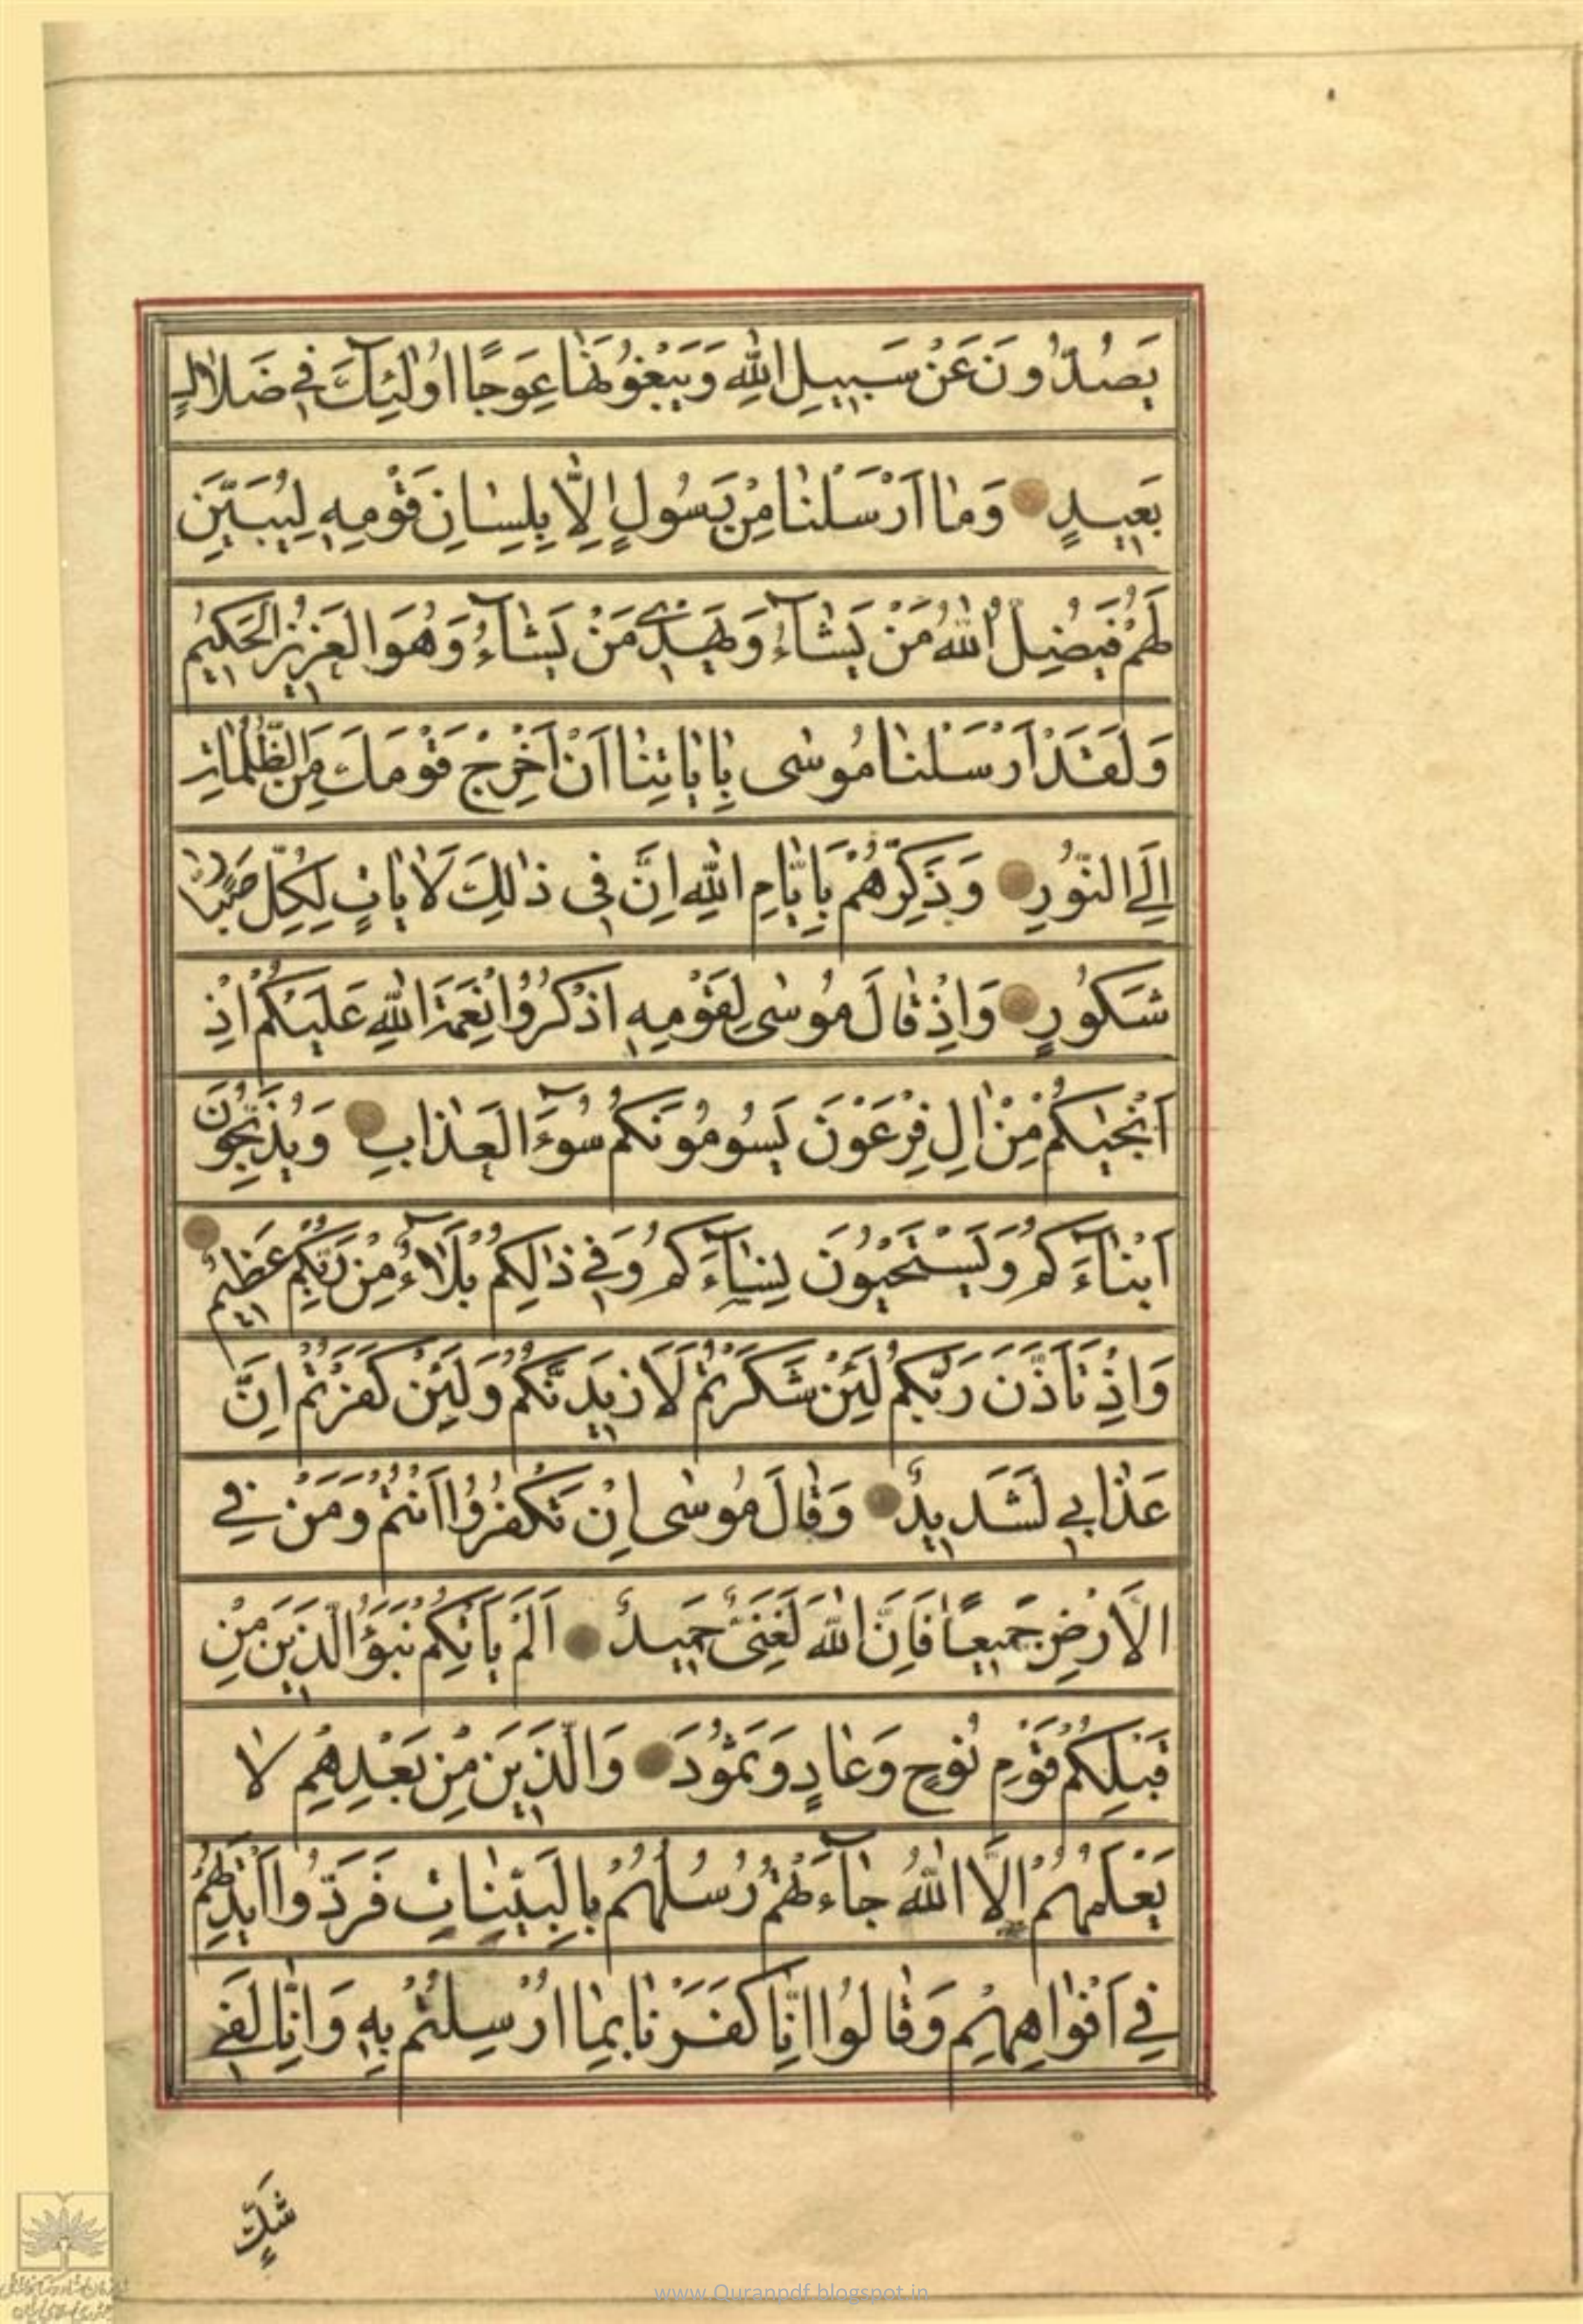 يَصُدُّونَ عَنْ سَبِيلِ اللّٰهِ وَيَبْغُونَهٰا عِوَجًا اُولٰئِكَ فِي ضَلٰالٍ
بَعِيدٍ وَمٰا اَرْسَلْنٰا مِنْ رَسُولٍ اِلَّا بِلِسٰانِ قَوْمِهِ لِيُبَيِّنَ
لَهُمْ فَيُضِلُّ اللّٰهُ مَنْ يَشٰآءُ وَيَهْدِي مَنْ يَشٰآءُ وَهُوَ الْعَزِيزُ الْحَكِيمُ
وَلَقَدْ اَرْسَلْنٰا مُوسٰى بِاٰيٰاتِنٰا اَنْ اَخْرِجْ قَوْمَكَ مِنَ الظُّلُمٰاتِ
اِلَى النُّورِ وَذَكِّرْهُمْ بِاَيّٰامِ اللّٰهِ اِنَّ فِي ذٰلِكَ لَاٰيٰاتٍ لِكُلِّ صَبّٰارٍ
شَكُورٍ وَاِذْ قٰالَ مُوسٰى لِقَوْمِهِ اذْكُرُوا نِعْمَةَ اللّٰهِ عَلَيْكُمْ اِذْ
اَنْجٰيكُمْ مِنْ اٰلِ فِرْعَوْنَ يَسُومُونَكُمْ سُوٓءَ الْعَذٰابِ وَيُذَبِّحُونَ
اَبْنٰآءَكُمْ وَيَسْتَحْيُونَ نِسٰآءَكُمْ وَفِي ذٰلِكُمْ بَلٰآءٌ مِنْ رَبِّكُمْ عَظِيمٌ
وَاِذْ تَاَذَّنَ رَبُّكُمْ لَئِنْ شَكَرْتُمْ لَاَزِيدَنَّكُمْ وَلَئِنْ كَفَرْتُمْ اِنَّ
عَذٰابِي لَشَدِيدٌ وَقٰالَ مُوسٰى اِنْ تَكْفُرُوا اَنْتُمْ وَمَنْ فِي
الْاَرْضِ جَمِيعًا فَاِنَّ اللّٰهَ لَغَنِيٌّ حَمِيدٌ اَلَمْ يَاْتِكُمْ نَبَؤُا الَّذِينَ مِنْ
قَبْلِكُمْ قَوْمِ نُوحٍ وَعٰادٍ وَثَمُودَ وَالَّذِينَ مِنْ بَعْدِهِمْ لٰا
يَعْلَمُهُمْ اِلَّا اللّٰهُ جٰآءَتْهُمْ رُسُلُهُمْ بِالْبَيِّنٰاتِ فَرَدُّوا اَيْدِيَهُمْ
فِي اَفْوٰاهِهِمْ وَقٰالُوا اِنّٰا كَفَرْنٰا بِمٰا اُرْسِلْتُمْ بِهِ وَاِنّٰا لَفِي
شَكٍّ
www.Quranpdf.blogspot.in